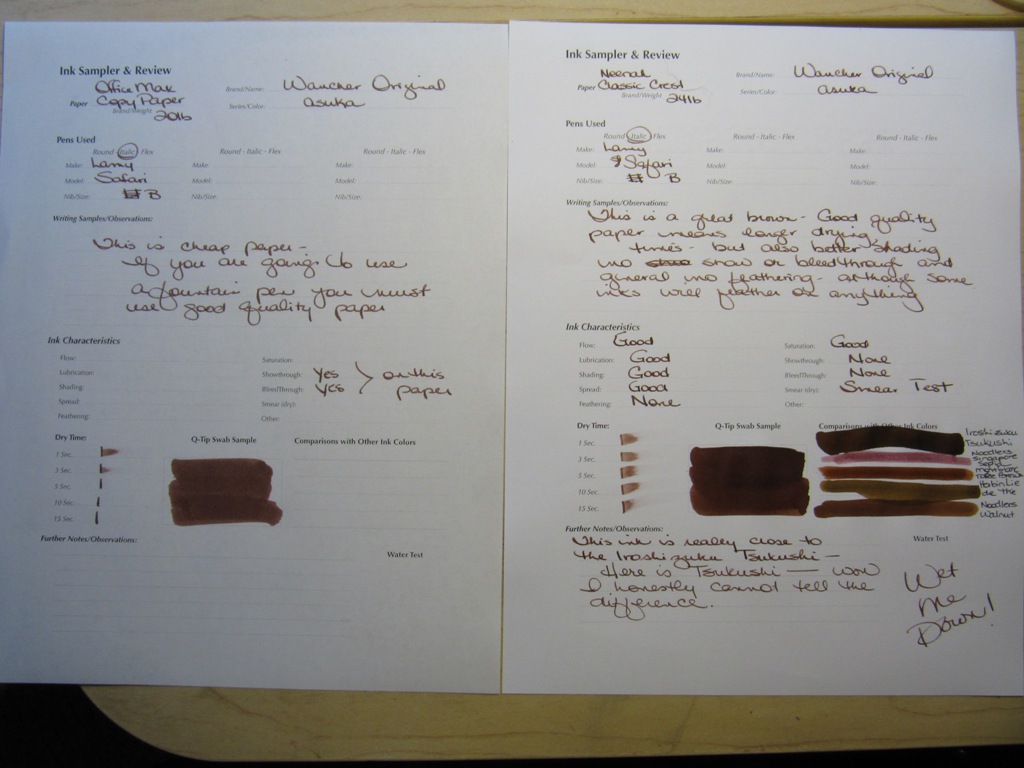 Ink Sampler & Review
Office Max
Paper Copy Paper
Brand/Weight 20lb
Brand/Name: Wancher Original
Series/Color: asuka
Pens Used
Round - Italic - Flex
Round - Italic - Flex
Round - Italic - Flex
Make: Lamy
Make:
Make:
Model: Safari
Model:
Model:
Nib/Size: B
Nib/Size:
Nib/Size:
Writing Samples/Observations:
This is cheap paper -
If you are going to use
a fountain pen you must
use good quality paper
Ink Characteristics
Flow:
Saturation:
Lubrication:
Showthrough: Yes
Shading:
BleedThrough: Yes
on this
paper
Spread:
Smear (dry):
Feathering:
Other:
Dry Time:
Q-Tip Swab Sample
Comparisons with Other Ink Colors
1 Sec.
3 Sec.
5 Sec.
10 Sec.
15 Sec.
Further Notes/Observations:
Water Test
Ink Sampler & Review
Neenah
Paper Classic Crest
Brand/Weight 24lb
Brand/Name: Wancher Original
Series/Color: asuka
Pens Used
Round - Italic - Flex
Round - Italic - Flex
Round - Italic - Flex
Make: Lamy
Make:
Make:
Model: Safari
Model:
Model:
Nib/Size: B
Nib/Size:
Nib/Size:
Writing Samples/Observations:
This is a great brown - Good quality
paper means longer drying
times - but also better shading
no show or bleedthrough and
general no feathering - although some
inks will feather on anything
Ink Characteristics
Flow: Good
Saturation: Good
Lubrication: Good
Showthrough: None
Shading: Good
BleedThrough: None
Spread: Good
Smear (dry): Smear Test
Feathering: None
Other:
Dry Time:
Q-Tip Swab Sample
Comparisons with Other Ink Colors
1 Sec.
3 Sec.
5 Sec.
10 Sec.
15 Sec.
Iroshizuku
Tsukushi
Noodlers
Singapore
Sepia
Habin Lie
de the
Noodlers
Walnut
Further Notes/Observations:
This ink is really close to
the Iroshizuku Tsukushi -
Here is Tsukushi - wow
I honestly cannot tell the
difference.
Water Test
Wet
Me
Down!